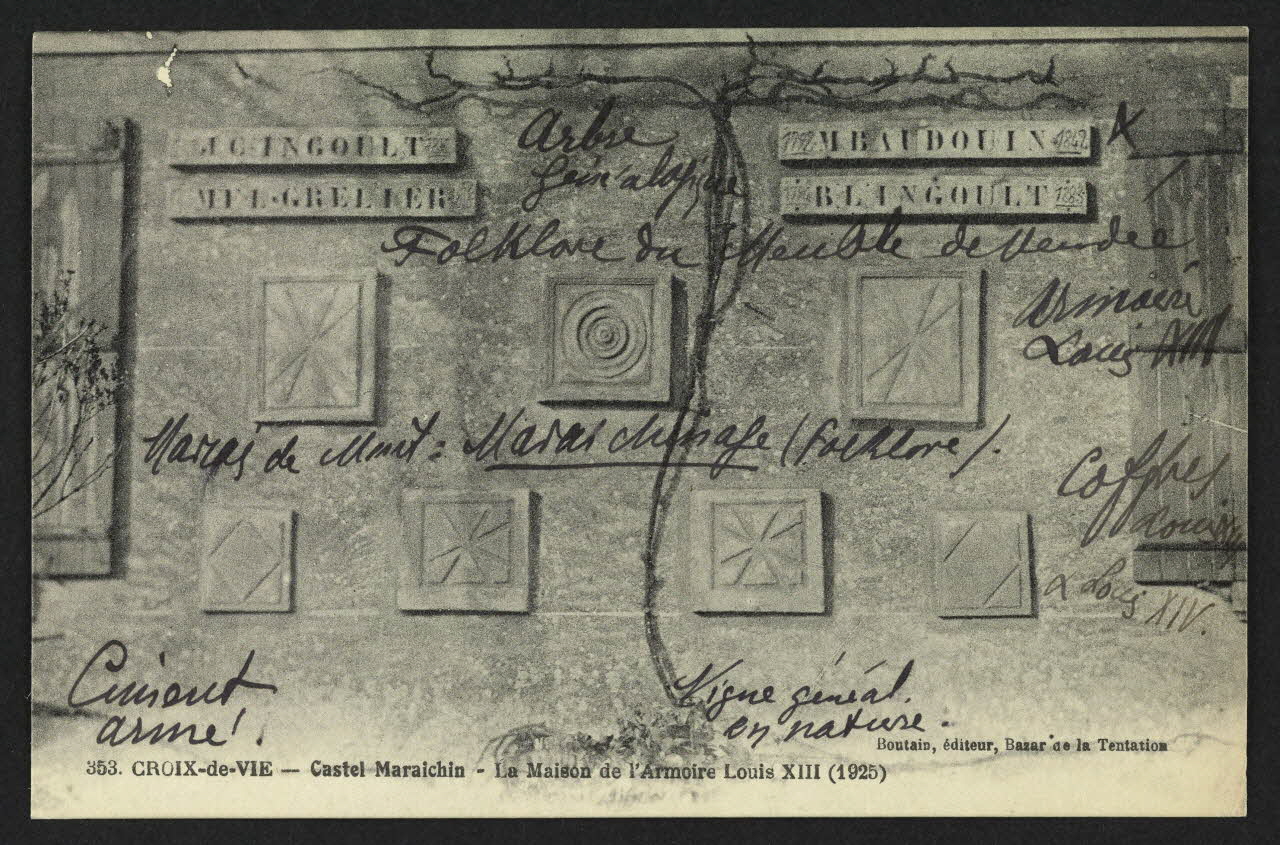 J C INGOULT
M BAUDOUIN 1842
MEL-GRELIER
B. L. INGOULT
Arbre
Généalogique
Folklore du Meuble de Vendée
Armoire
Louis XIII
Marais de Mont : Maraichinage (Folklore).
Coffres
Louis
& Louis XIV.
Ciment
armé !
Vigne généal.
en nature.
Boutain, éditeur, Bazar de la Tentation
353. CROIX-de-VIE — Castel Maraichin - La Maison de l'Armoire Louis XIII (1925)